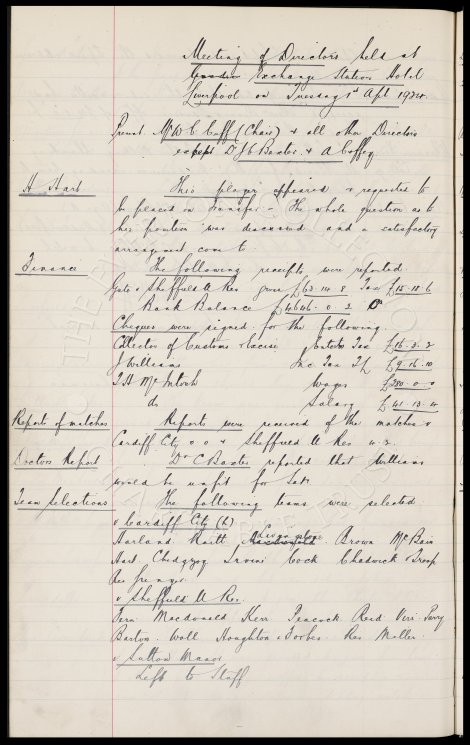 Meeting of Directors held at
Exchange Station Hotel
Liverpool on Tuesday 1st Apl 1924.
Present Mr W C Cuff (Chair) & all other Directors
except Dr J C Baxter & A Coffey
H Hart
This player appeared & requested to
be placed on Transfer - The whole question as to
his position was discussed and a satisfactory
arrangement come to.
Finance
The following receipts were reported.
Gate v Sheffield U Res gross £63.14.8 Tax £15.18.6
Bank Balance £4646.0.3
Cheques were signed for the following.
Collector of Customs & Excise Entets Tax £16.3.2
J Williams Inc Tax £9.16.10
T H McIntosh Wages £380.0.0
do Salary £41.13.4
Report of matches
Reports were received of the matches v
Cardiff City 0 0 & Sheffield U Res 4.2.
Doctors Report
Dr C Baxter reported that Williams
would be unfit for Sat.
Team Selections
The following teams were selected
v Cardiff City (h)
Harland Raitt Livingstone Brown McBain
Hart Chedgzoy Irvine Cock Chadwick & Troup
Res
v Sheffield U Res.
Fern Macdonald Kerr Peacock Reid Virr Parry
Barton Wall Houghton & Forbes Res Moller.
v Sutton Manor
Left to Staff